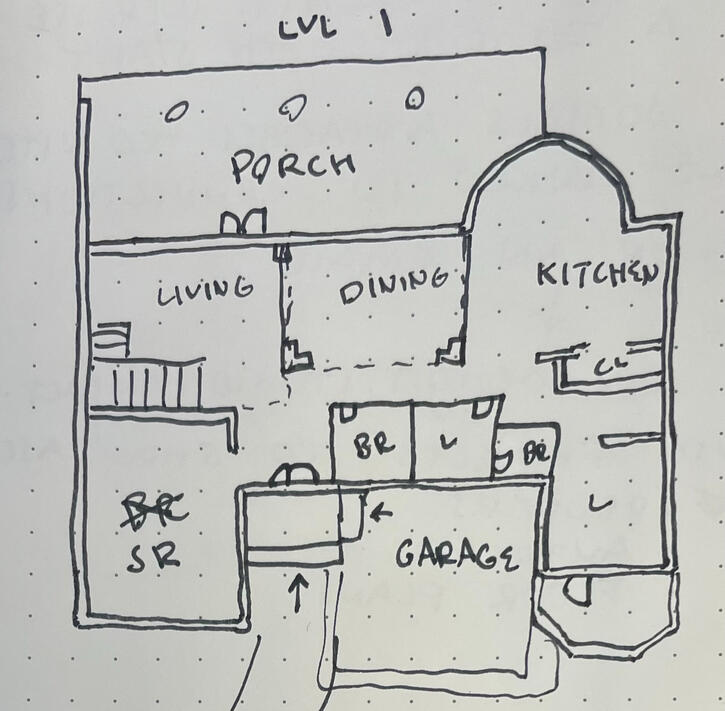 LVL 1
PORCH
LIVING
DINING
KITCHEN
CL
BR
L
BR
L
SR
GARAGE